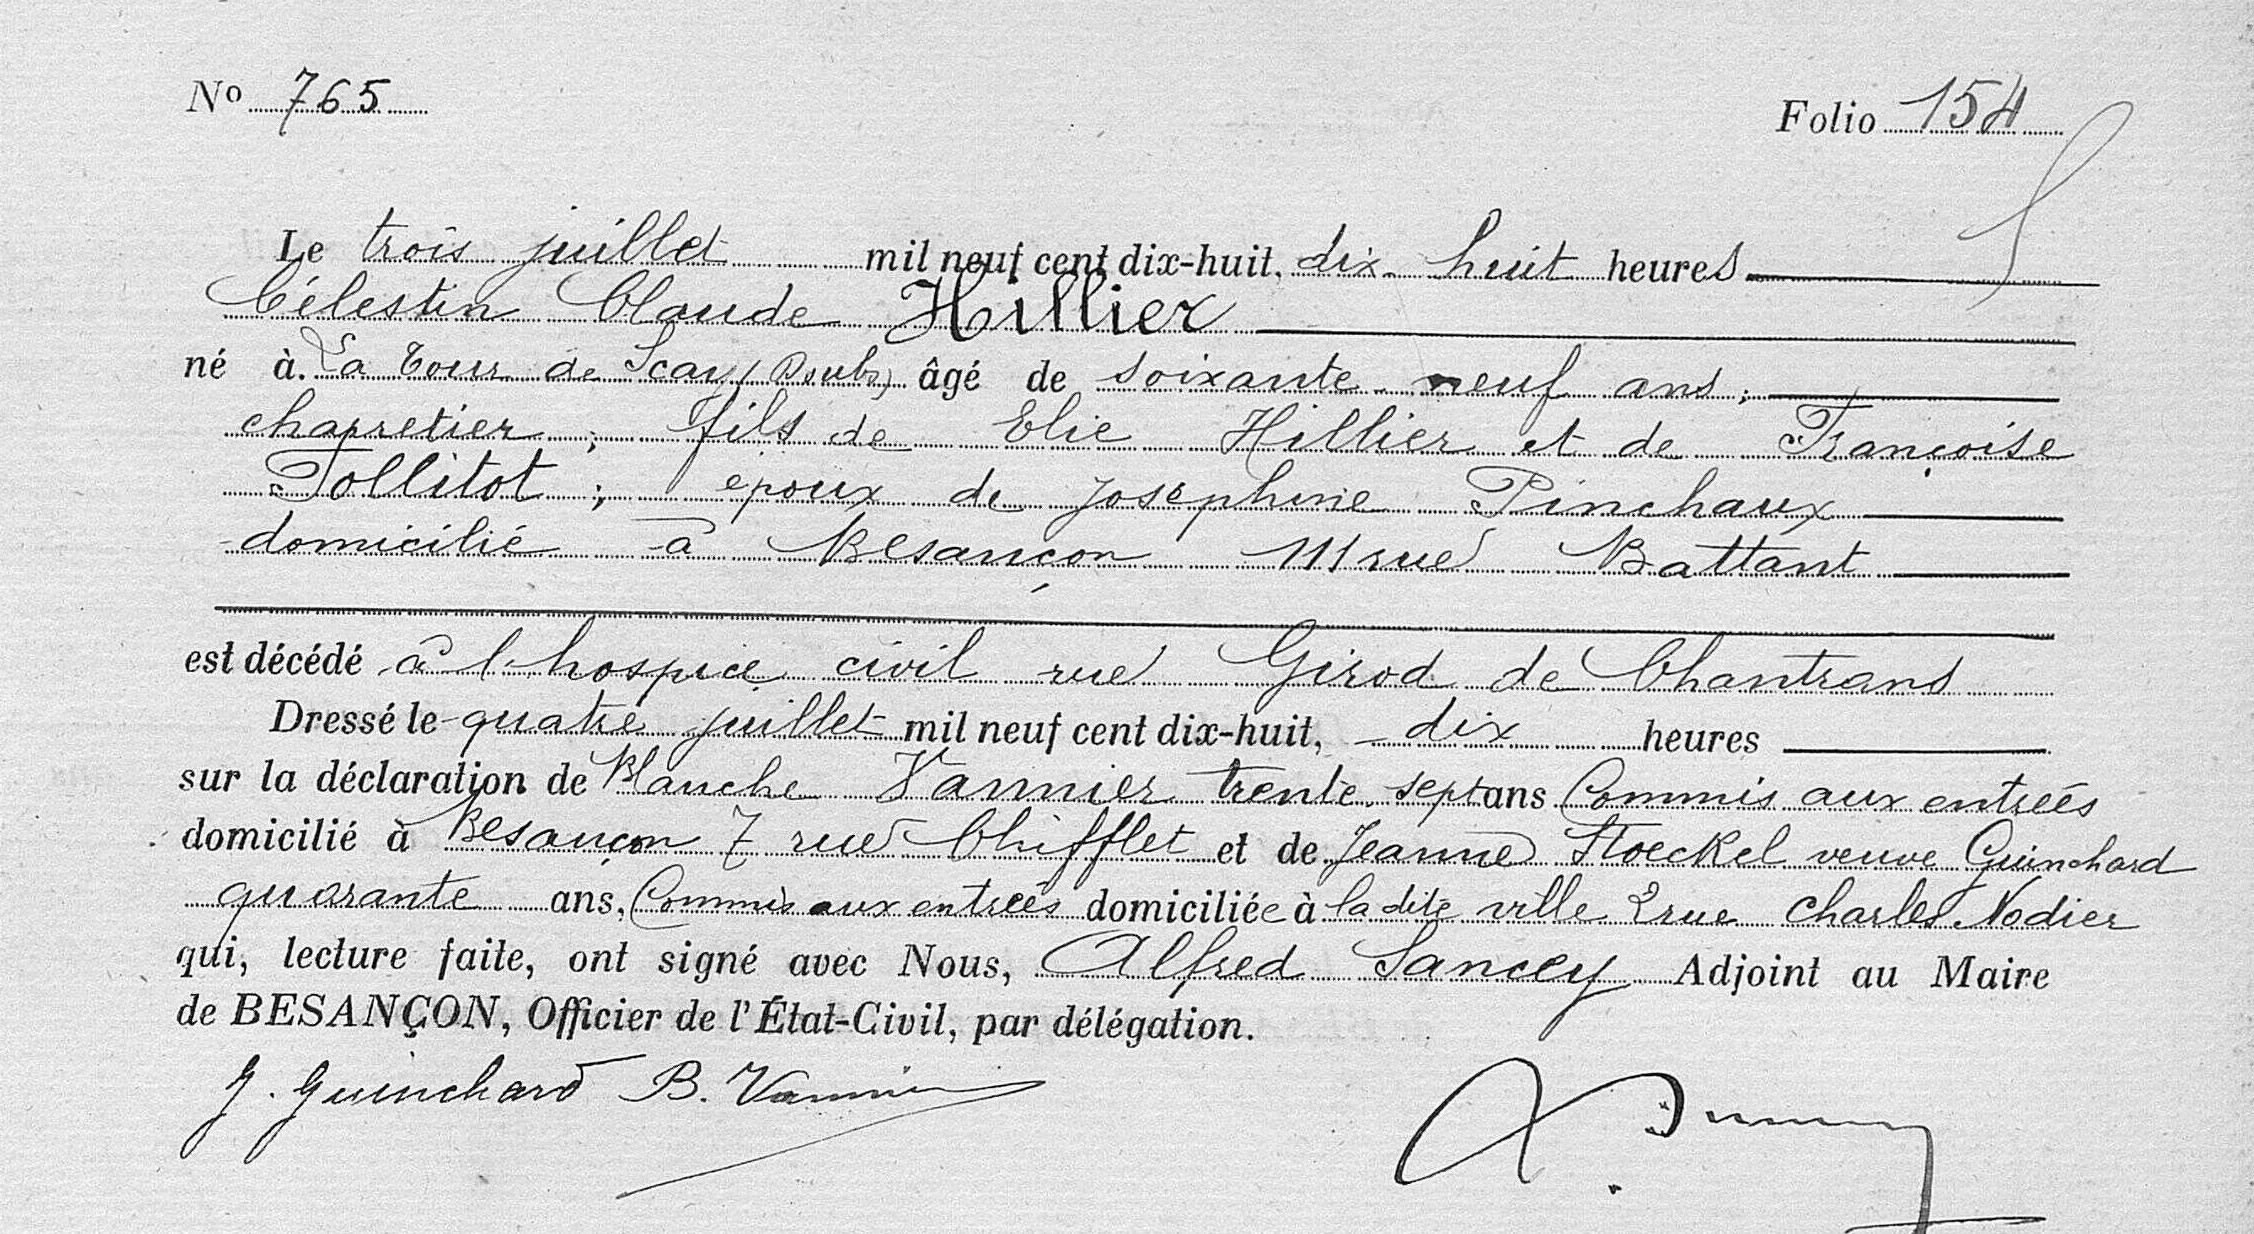 No 765
Folio 154
Le trois juillet mil neuf cent dix-huit, dix-huit heures
Célestin Claude Hillier
né à La Tour de Scay (Doubs) âgé de soixante neuf ans;
charretier; fils de Elie Hillier et de Françoise
Tollitot; époux de Joséphine Pinchaux
domicilié à Besançon 111 rue Battant
est décédé à l'hospice civil rue Girod de Chantrans
Dressé le quatre juillet mil neuf cent dix-huit, dix heures
sur la déclaration de Blanche Vannier trente-sept ans Commis aux entrées
domicilié à Besançon 7 rue Chifflet et de Jeanne Stoeckel veuve Guinchard
quarante ans, Commis aux entrées domiciliée à la dite ville 2 rue Charles Nodier
qui, lecture faite, ont signé avec Nous, Alfred Sancey Adjoint au Maire
de BESANÇON, Officier de l'État-Civil, par délégation.
J. Guinchard B. Vannier